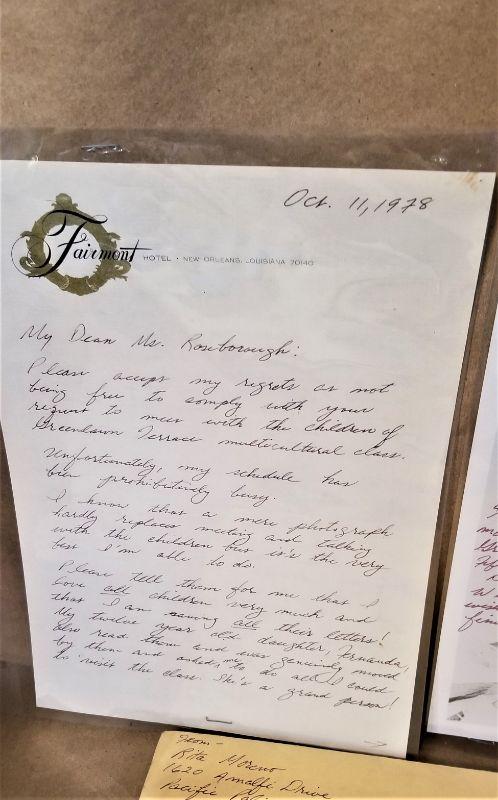 Oct. 11, 1978
Fairmont HOTEL • NEW ORLEANS, LOUISIANA 70140
My Dear Ms. Roseborough:
Please accept my regrets as not
being free to comply with your
request to meet with the children of
Greenlawn Terrace multicultural class.
Unfortunately, my schedule has
been prohibitively busy.
I know that a mere photograph
hardly replaces meeting and talking
with the children but it's the very
best I'm able to do.
Please tell them for me that I
love all children very much and
that I am saving all their letters!
My twelve year old daughter, Fernanda,
also read them and was genuinely moved
by them and asked me to do all I could
to visit the class. She's a grand person!
From-
Rita Moreno
1620 Amalfi Drive
Pacific